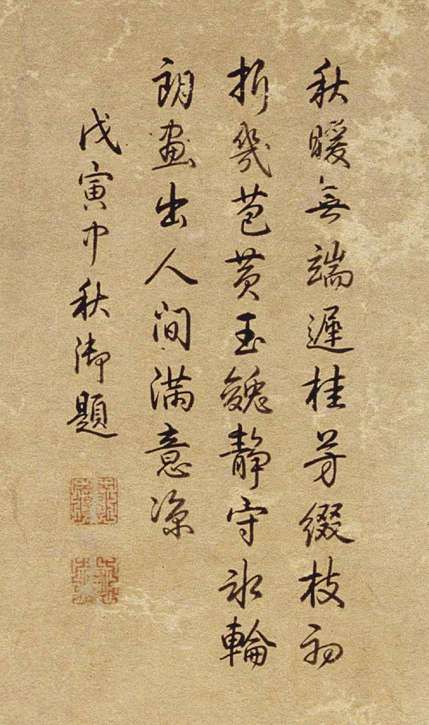 秋暖無端遲桂芳綴枝初
折幾苞黃玉魂靜守冰輪
朗畫出人間滿意涼
戊寅中秋御題